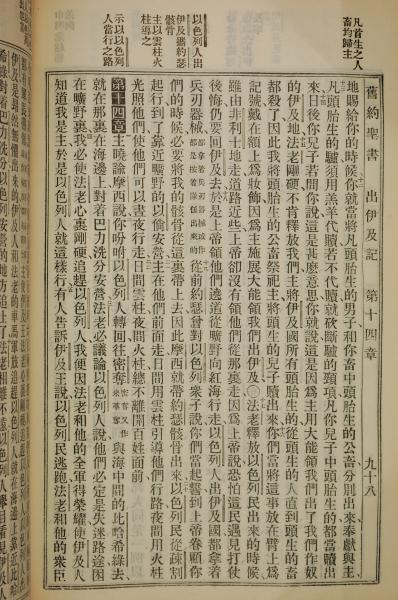 凡首生之人
畜均歸主
以色列人出
伊及攜約瑟
骸骨
主以雲柱火
柱導之
示以以色列
人當行之路
舊約聖書 出伊及記 第十四章 九十八
地賜給你的時候你就當將凡頭胎生的男子和你畜中頭胎生的公畜分別出來奉獻與主
凡頭胎生的驢須用羔羊代贖若不代贖就砍斷驢的頸項凡你兒子中頭胎生的都當贖出
來日後你兒子若問你說這是甚麼意思你就說這是因爲主用大能領我們出了我們作奴
的伊及地法老剛硬不肯釋放我們主將伊及國所有頭胎生的從頭生的人直到頭生的畜
都殺了因此我將頭胎生的公畜祭祀主將頭生的兒子贖出來你們當將這事放在臂上爲
記號戴在額上爲妝飾因爲主施展大能領我們出伊及○法老釋放以色列民出來的時候
雖由非利士地走道路近些上帝卻沒有領他們從那裏走因爲上帝說恐怕這民遇見打仗
後悔仍要回伊及去於是上帝領他們遶道從曠野向紅海行走以色列人出伊及國都拿着
兵刃器械都拿着兵刃器械或作都是按着隊伍出來的從前約瑟曾對以色列衆子說你們當起誓到上帝眷顧你
們的時候必要將我的骸骨從這裏帶上去因此摩西就帶約瑟骸骨出來以色列民從疎割
起行到了靠近曠野的以倘安營主在他們前面走日間用雲柱引導他們行路夜間用火柱
光照他們使他們可以晝夜行走日間雲柱夜間火柱總不離開百姓面前
第十四章主曉諭摩西說你吩咐以色列人轉回往密奪與海中間的比哈希綠去
就在那裏在海邊上對着巴力洗分安營法老必議論以色列人說他們必定是失迷路途困
在曠野裏我必使法老心裏剛硬追趕以色列人我便因法老和他的全軍得榮耀使伊及人
知道我是主於是以色列人就這樣行有人告訴伊及王說以色列民逃跑法老和他的衆臣